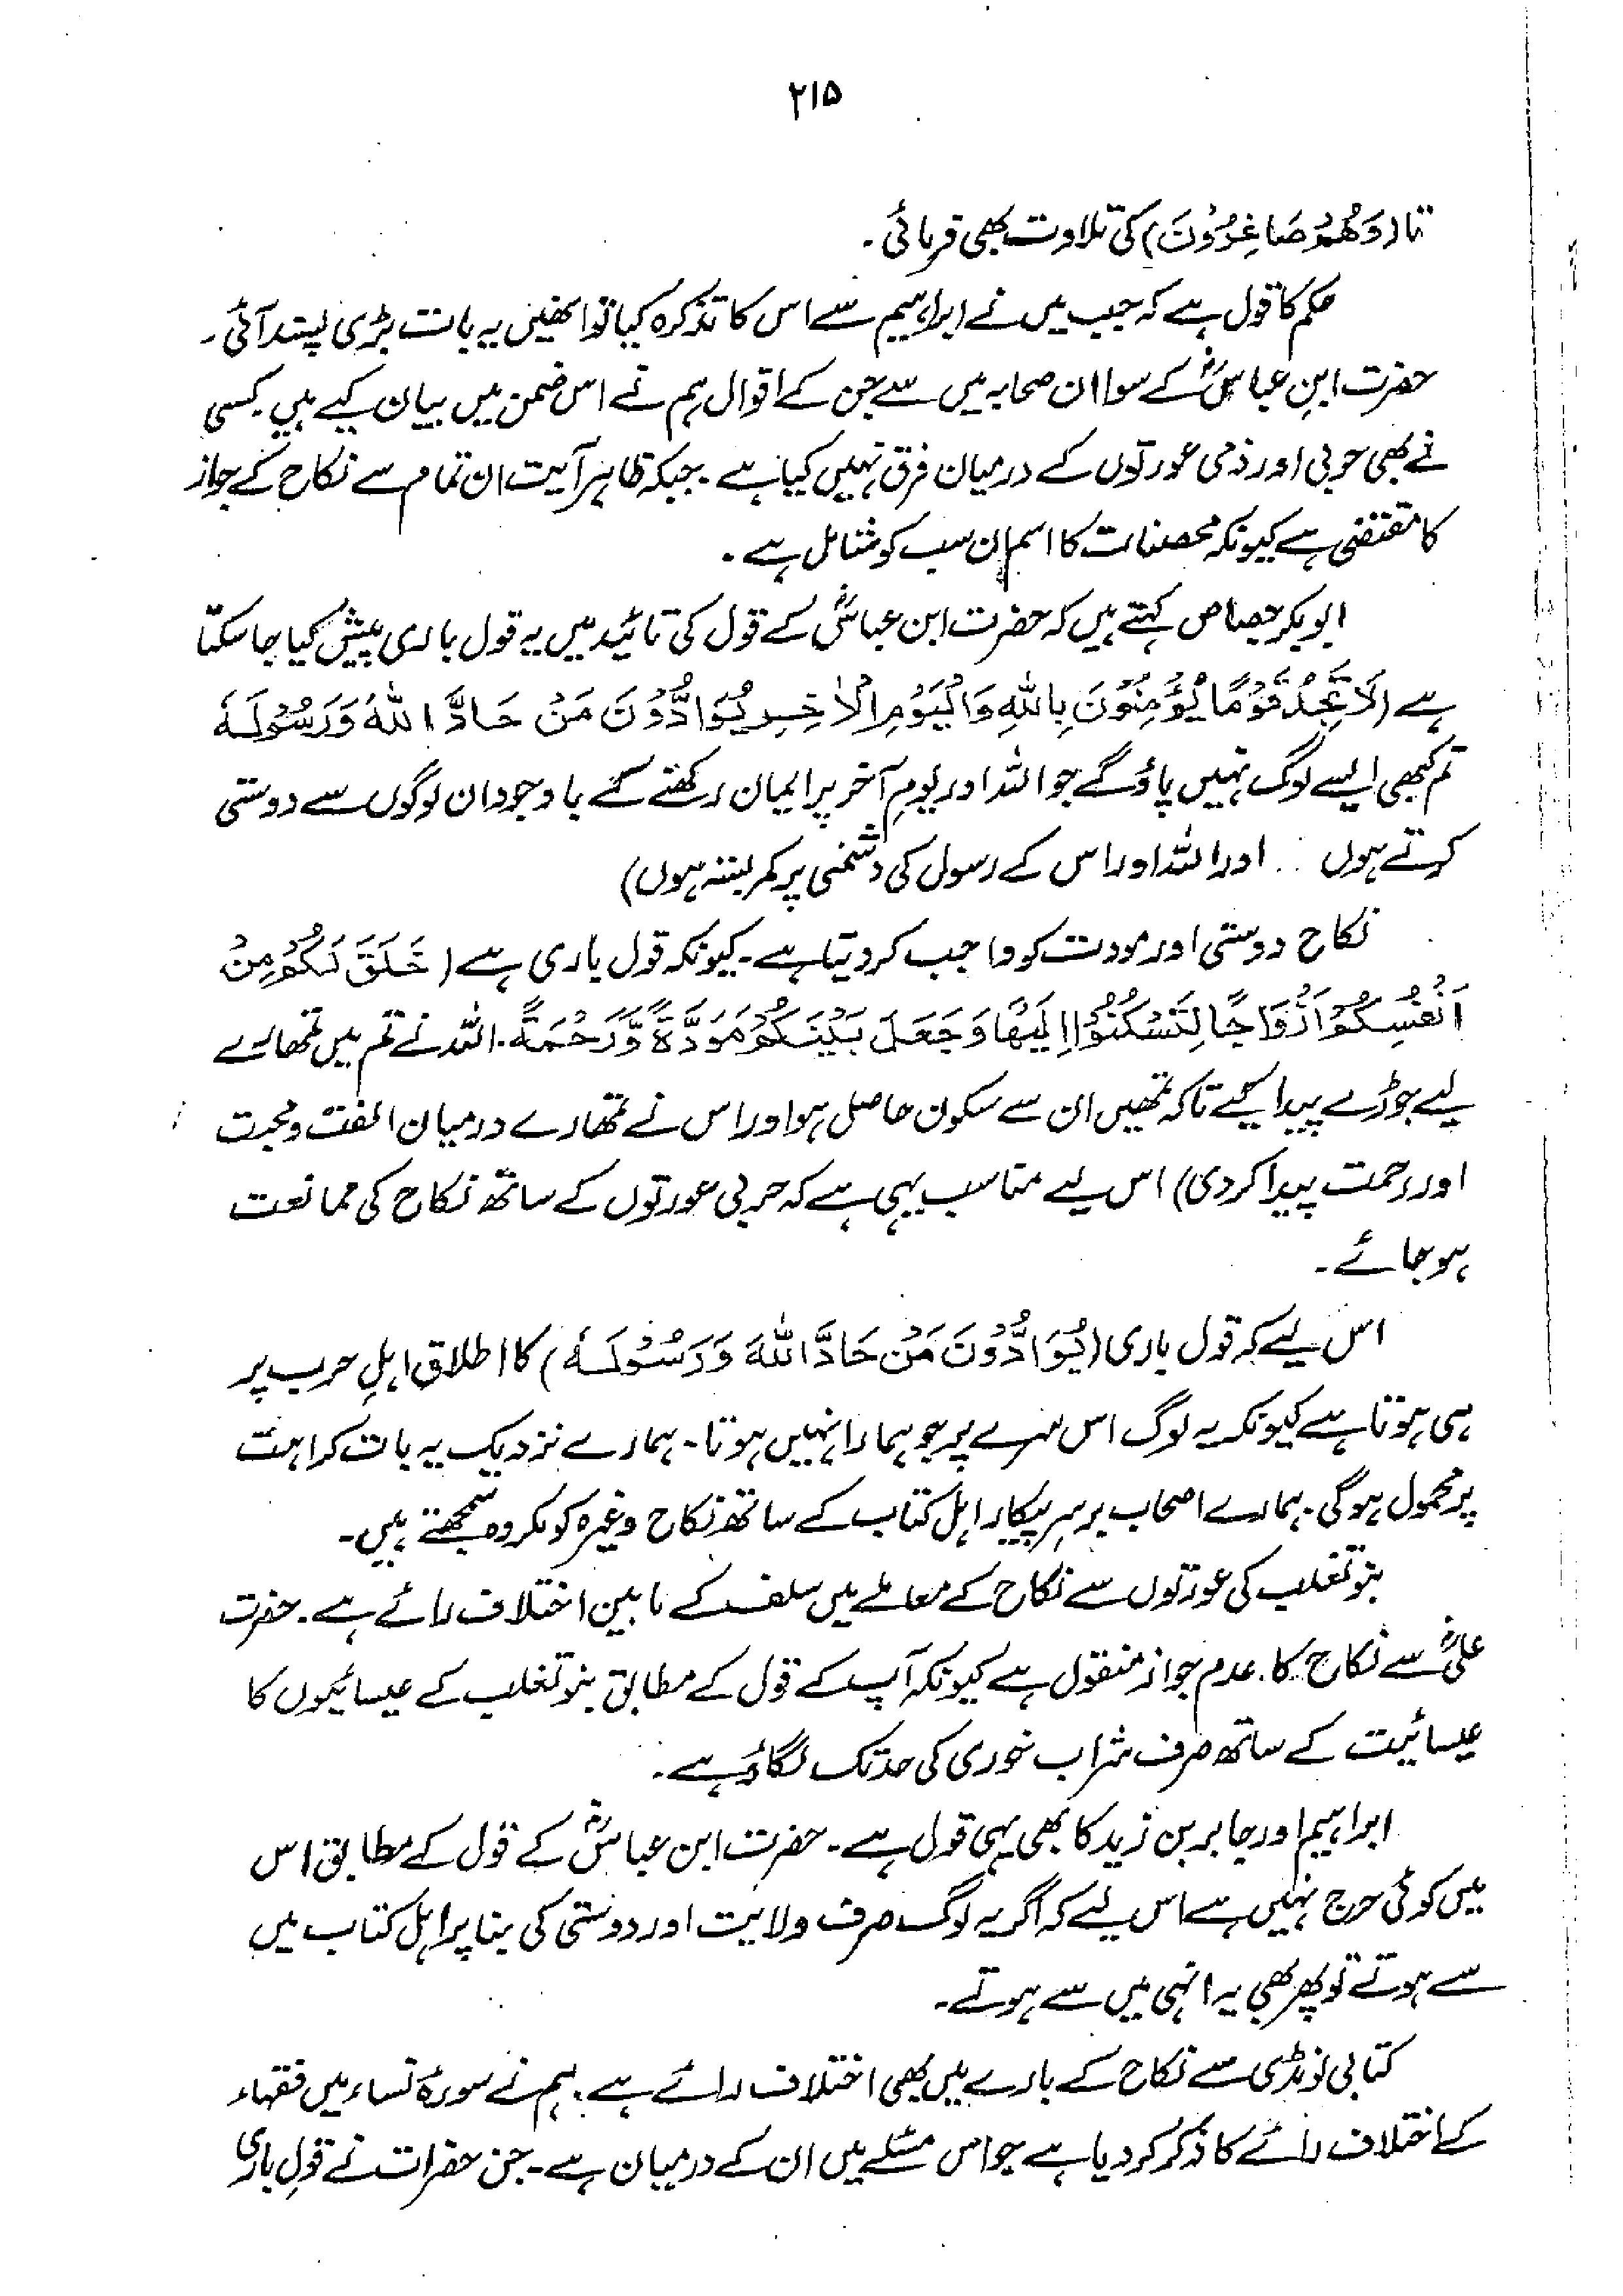 ۲۱۵
تا (وَهُمْ صَاغِرُوْنَ) کی تلاوت بھی فرمائی۔
حکم کا قول ہے کہ جب میں نے ابراہیم سے اس کا تذکرہ کیا تو انھیں یہ بات بڑی پسند آئی۔
حضرت ابنِ عباسؓ کے سوا ان صحابہ میں سے جن کے اقوال ہم نے اس ضمن میں بیان کیے ہیں۔ کسی
نے بھی حربی اور ذمی عورتوں کے درمیان فرق نہیں کیا ہے۔ جبکہ ظاہر آیت ان تمام سے نکاح کے جواز
کا مقتضی ہے کیونکہ محصنات کا اسم ان سب کو شامل ہے۔
ابوبکر جصاص کہتے ہیں کہ حضرت ابن عباسؓ کے قول کی تائید میں یہ قول باری پیش کیا جا سکتا
ہے (لَا تَجِدُ قَوْمًا يُّؤْمِنُوْنَ بِاللهِ وَالْيَوْمِ الْاٰخِرِ يُوَادُّوْنَ مَنْ حَادَّ اللهَ وَرَسُوْلَهٗ
تم کبھی ایسے لوگ نہیں پاؤ گے جو اللہ اور یومِ آخر پر ایمان رکھنے کے باوجود ان لوگوں سے دوستی
کرتے ہوں .. اور اللہ اور اس کے رسول کی دشمنی پر کمربستہ ہوں)
نکاح دوستی اور مودت کو واجب کر دیتا ہے۔ کیونکہ قول باری ہے (خَلَقَ لَكُمْ مِنْ
اَنْفُسِكُمْ اَزْوَاجًا لِتَسْكُنُوْا اِلَيْهَا وَجَعَلَ بَيْنَكُمْ مَوَدَّةً وَّرَحْمَةً۔ اللہ نے تم میں تمھارے
لیے جوڑے پیدا کیے تاکہ تمھیں ان سے سکون حاصل ہو اور اس نے تمھارے درمیان الفت و محبت
اور رحمت پیدا کر دی) اس لیے مناسب یہی ہے کہ حربی عورتوں کے ساتھ نکاح کی ممانعت
ہو جائے۔
اس لیے کہ قول باری (يُوَادُّوْنَ مَنْ حَادَّ اللهَ وَرَسُوْلَهٗ) کا اطلاق اہلِ حرب پر
ہی ہوتا ہے کیونکہ یہ لوگ اس سرے پر جو ہمارا نہیں ہوتا۔ ہمارے نزدیک یہ بات کراہت
پر محمول ہوگی۔ ہمارے اصحاب برسرِ پیکار اہل کتاب کے ساتھ نکاح وغیرہ کو مکروہ سمجھتے ہیں۔
بنو تغلب کی عورتوں سے نکاح کے معاملے میں سلف کے مابین اختلاف رائے ہے۔ حضرت
علیؓ سے نکاح کا عدم جواز منقول ہے کیونکہ آپ کے قول کے مطابق بنو تغلب کے عیسائیوں کا
عیسائیت کے ساتھ صرف شراب خوری کی حد تک لگاؤ ہے۔
ابراہیم اور جابر بن زید کا بھی یہی قول ہے۔ حضرت ابن عباسؓ کے قول کے مطابق اس
میں کوئی حرج نہیں ہے اس لیے کہ اگر یہ لوگ صرف ولایت اور دوستی کی بنا پر اہل کتاب میں
سے ہوتے تو پھر بھی یہ انہی میں سے ہوتے۔
کتابی لونڈی سے نکاح کے بارے میں بھی اختلاف رائے ہے۔ ہم نے سورۂ نساء میں فقہاء
کے اختلاف رائے کا ذکر کر دیا ہے جو اس مسئلے میں ان کے درمیان ہے۔ جن حضرات نے قولِ باری